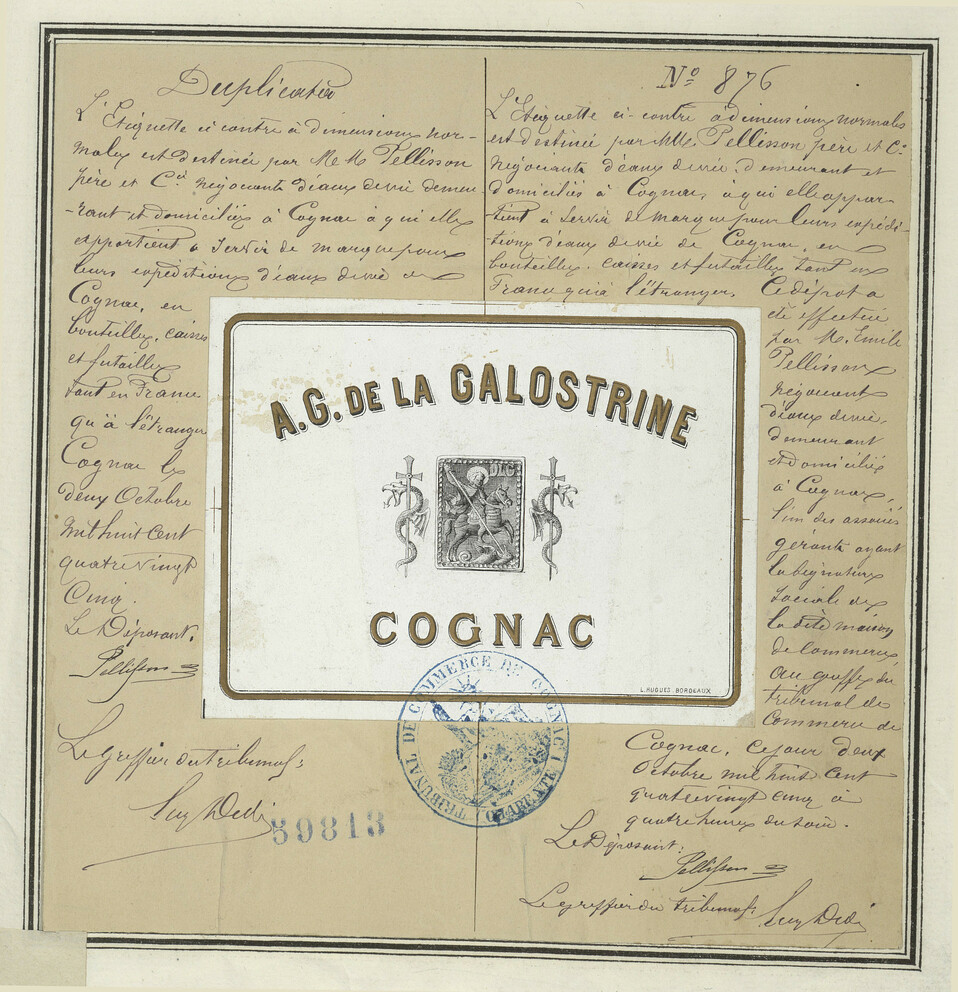 Duplicata
L'Etiquette ci contre à dimensions nor-
males est destinée par MM. Pellisson
père et Cie négociants d'eaux de vie demeu
-rant et domiciliés à Cognac à qui elle
appartient à servir de marque pour
leurs expéditions d'eaux de vie de
Cognac, en
bouteilles, caisses
et futailles
tant en France
qu'à l'étranger
Cognac le
deux Octobre
mil huit cent
quatre vingt
cinq.
Le Déposant,
Pellisson
Le greffier du tribunal:
59813
No 876
L'Etiquette ci-contre à dimensions normales
est destinée par MM. Pellisson père et Cie
négociants d'eaux de vie, demeurant et
domiciliés à Cognac, à qui elle appar-
-tient à servir de marque pour leurs expédi-
-tions d'eaux de vie de Cognac, en
bouteilles, caisses et futailles tant en
France qu'à l'étranger. Ce dépôt a
été effectué
par M. Emile
Pellisson
négociant
d'eaux de vie,
demeurant
et domicilié
à Cognac,
l'un des associés
gérants ayant
la signature
sociale de
la dite maison
de commerce
au greffe du
tribunal de
Commerce de
Cognac, ce jour deux
Octobre mil huit cent
quatre vingt cinq à
quatre heures du soir.
Le Déposant:
Pellisson
Le greffier du tribunal:
A.G. DE LA GALOSTRINE
DIG
COGNAC
L. HUGUES. BORDEAUX
TRIBUNAL DE COMMERCE DE COGNAC (CHARENTE)